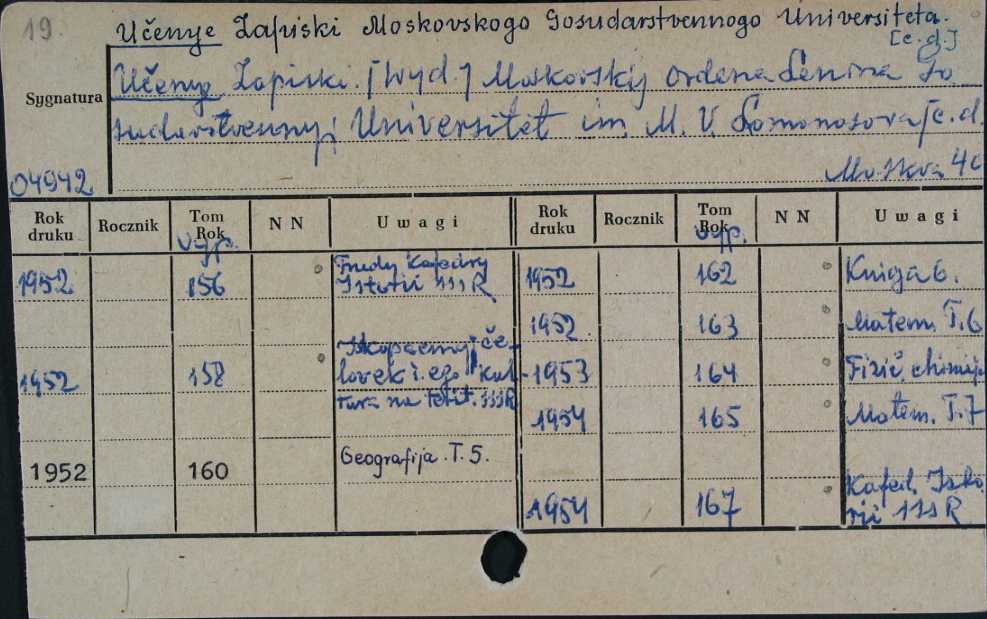 19.
Učenye Zapiski Moskovskogo Gosudarstvennogo Universiteta.
[c.d.]
Učenye Zapiski. [Wyd.] Moskovskij ordena Lenina Go
sudarstvennyj Universitet im. M. V. Lomonosova [c.d.
Sygnatura
04942
Moskva 40
Rok druku Rocznik Tom Rok NN Uwagi Rok druku Rocznik Tom Rok NN Uwagi
vyp. vyp.
1952 156 Trudy Kafedry
Istorii SSSR
1952 162 Kniga 6.
1952. 163 Matem. T. 6
1952 158 Iskopaemyj če-
lovek i ego kul-
tura na territ. SSSR
1953 164 Fizič. chimija
1954 165 Matem. T. 7
1952 160 Geografija. T. 5.
1954 167 Kafed. Isto
rii SSSR